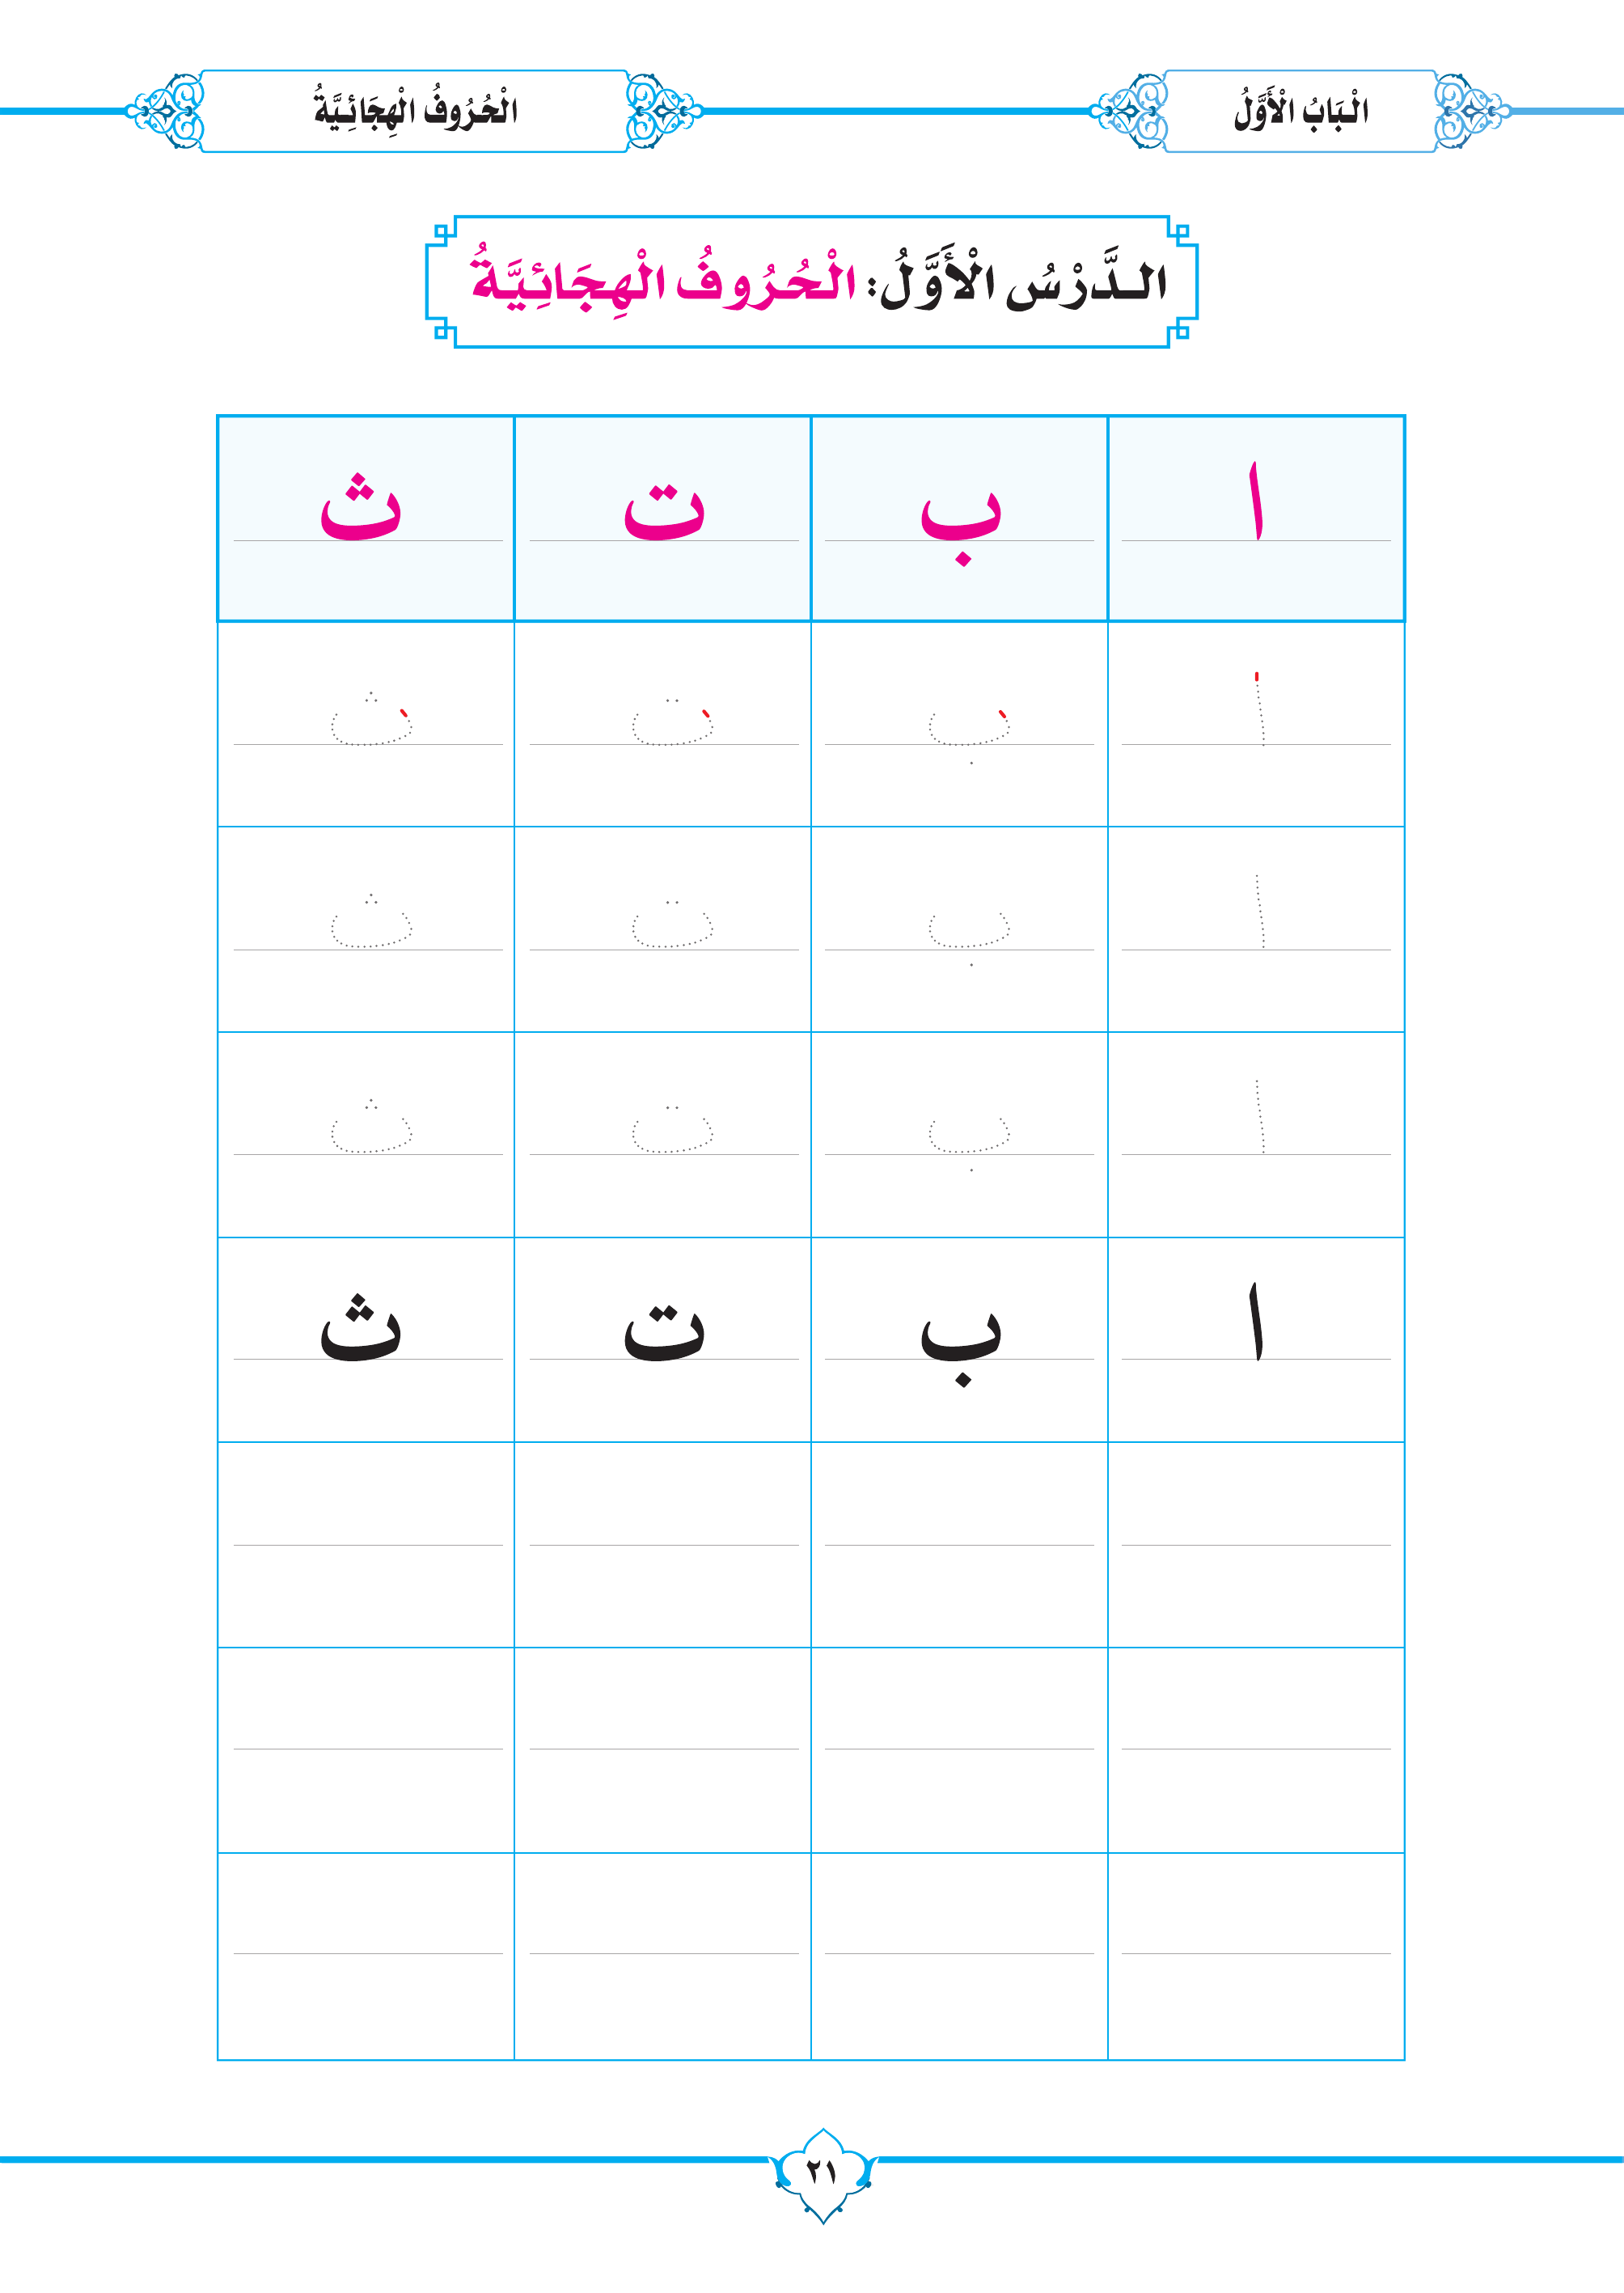 الْبَابُ الْأَوَّلُ
الْحُرُوفُ الْهِجَائِيَّةُ
الـدَّرْسُ الْأَوَّلُ: الْحُرُوفُ الْهِجَائِيَّةُ
ا ب ت ث
ا ب ت ث
ا ب ت ث
ا ب ت ث
ا ب ت ث
٢١